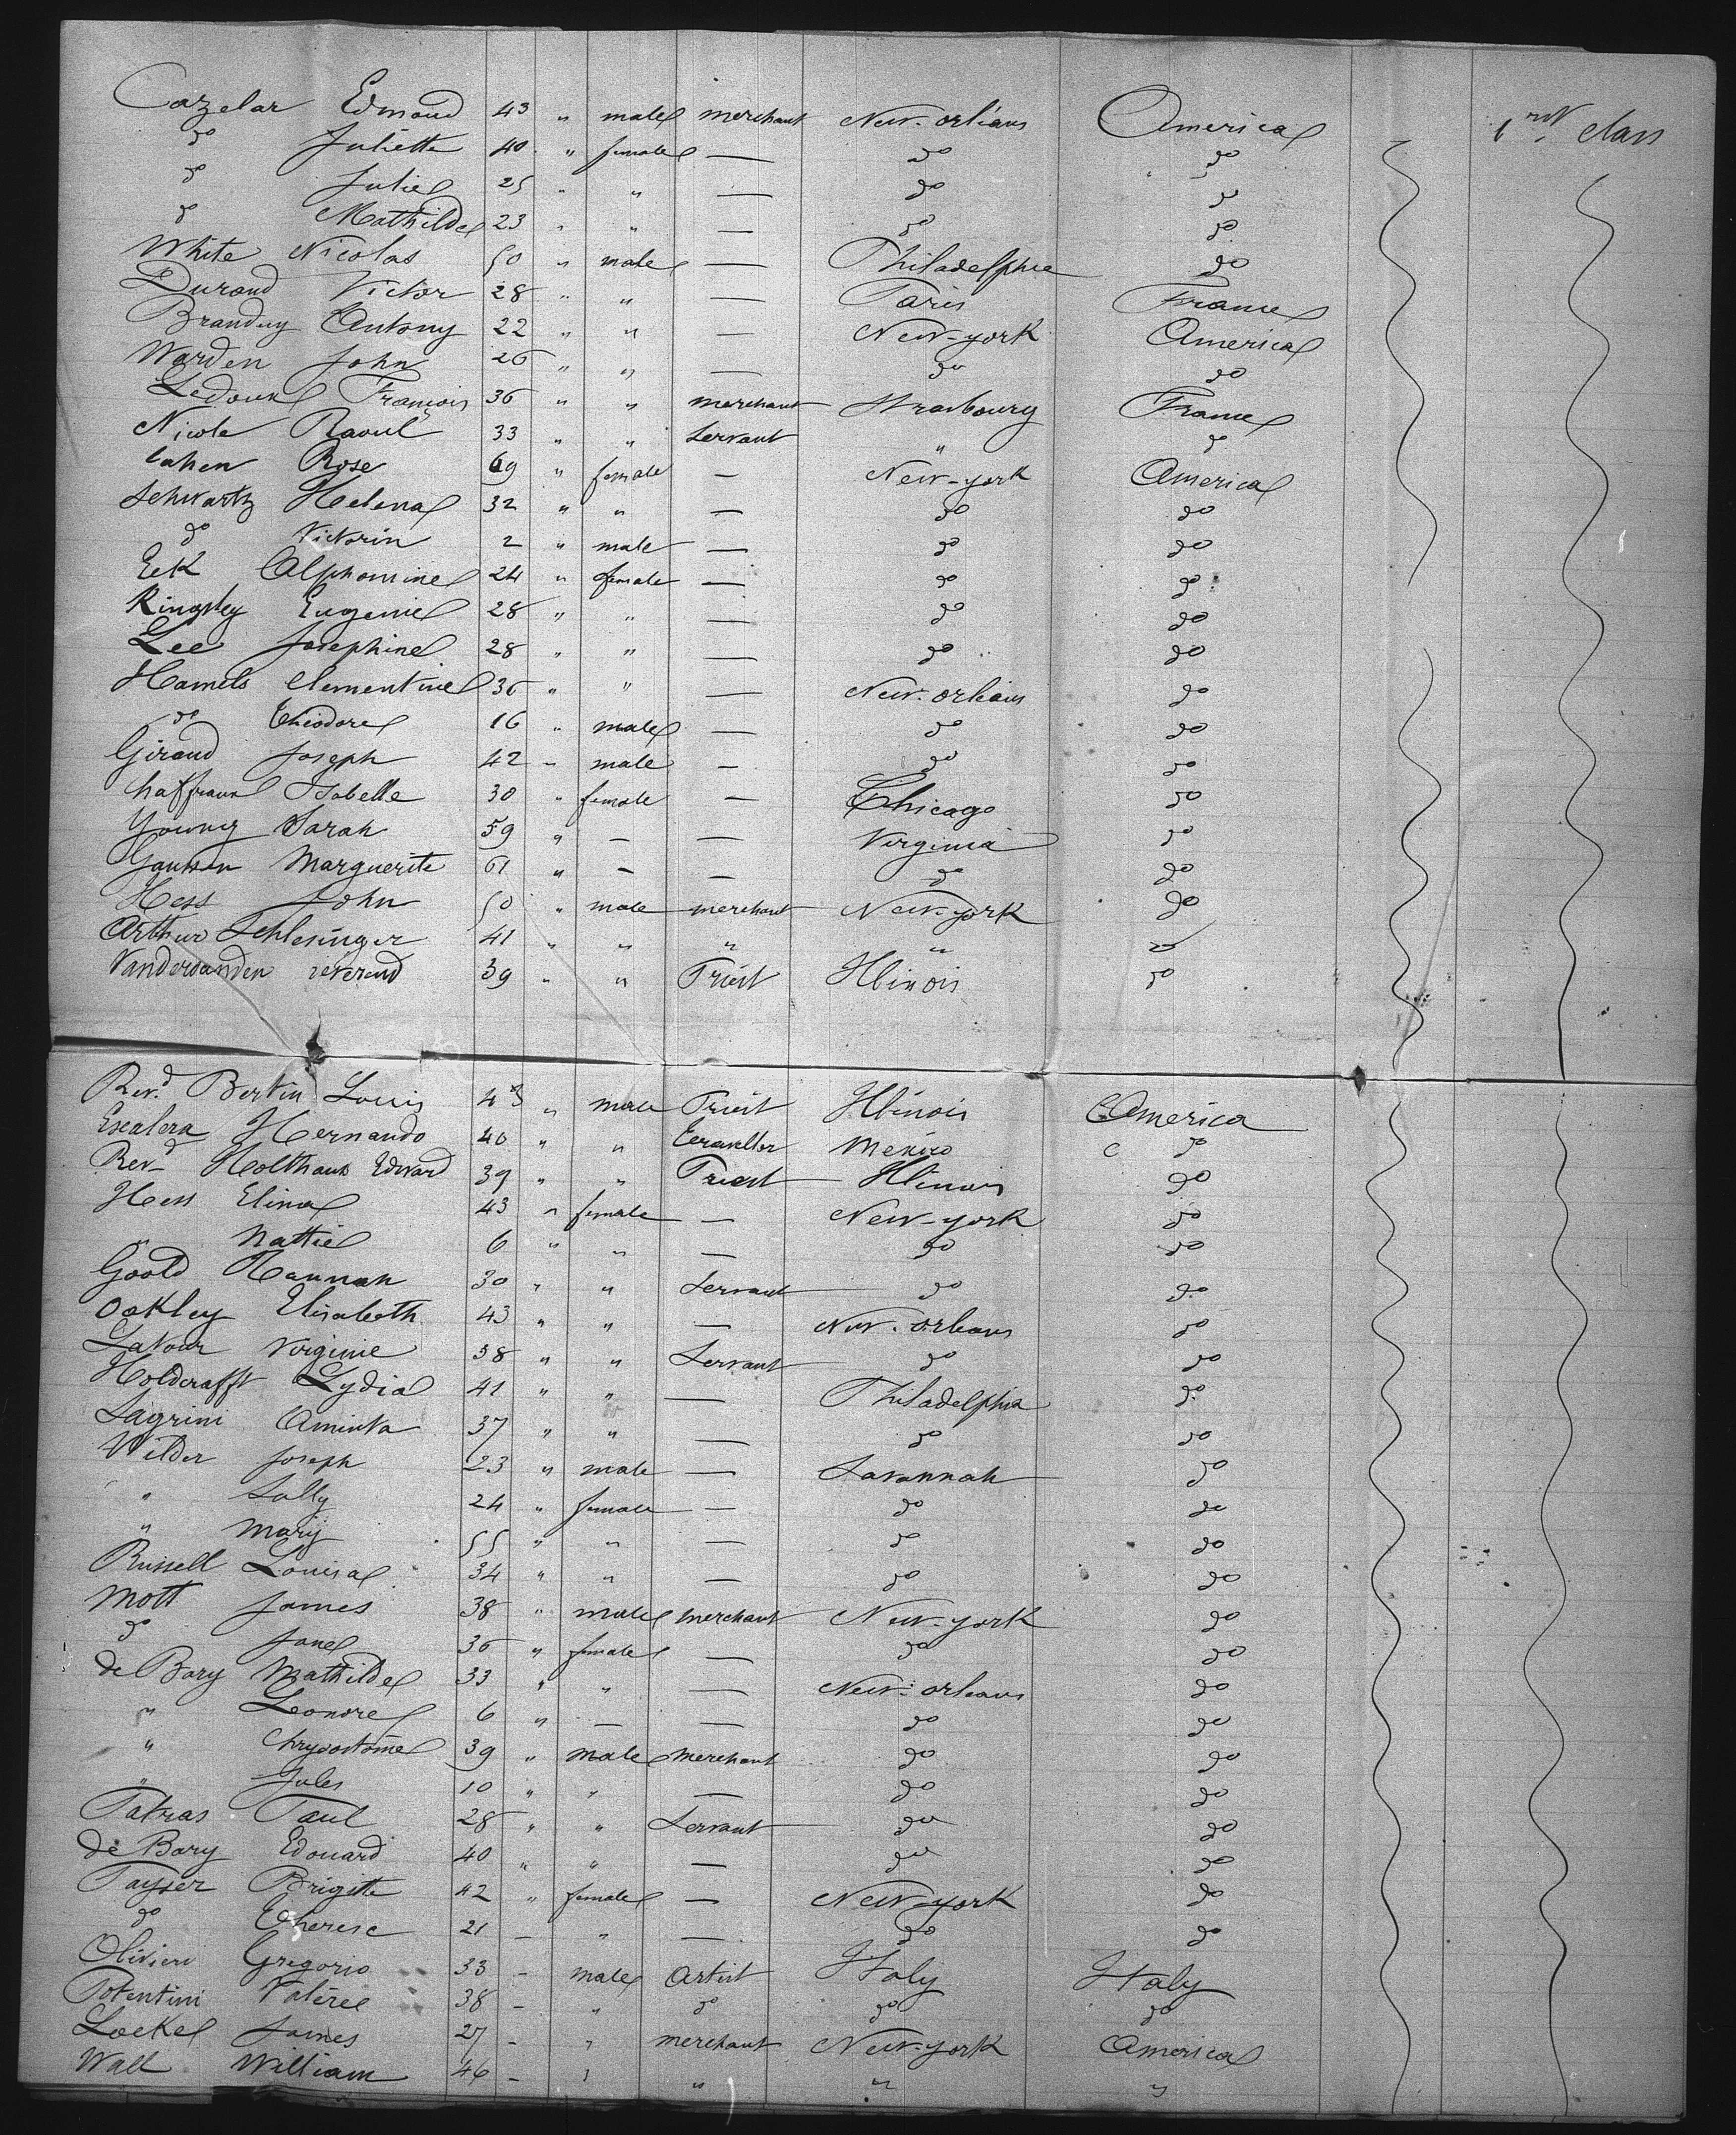 Cazelar Edmond 43 " male merchant New-orléans America 1rst class
do Juliette 40 " female — do do
do Julie 25 " " — do do
do Mathilde 23 " " — do do
White Nicolas 50 " male — Philadelphia do
Durand Victor 28 " " — Paris France
Antony 22 " " — New-york America
Warden John 26 " " — do do
Ledoux François 36 " " merchant Strasbourg France
Nicole Raoul 33 " " Servant " do
Cahen Rose 69 " female — New-york America
Schwartz Helena 32 " " — do do
do Victorin 2 " male — do do
Eck Alphonsine 24 " female — do do
Kingsley Eugenie 28 " " — do do
Lee Josephine 28 " " — do do
Hamels Clementine 36 " " — New-orléans do
do Théodore 16 " male — do do
Giraud Joseph 42 " male — do do
Isabelle 30 " female — Chicago do
Young Sarah 59 " — — Virginia do
Marguerite 61 " — — do do
Hess John 50 " male merchant New-york do
Arthur Schlesinger 41 " " " " do
Vandersanden réverend 39 " " Priest Illinois do
Revd Bertin Louis 43 " male Priest Illinois America
Escalera Hernando 40 " " Mexico do
Revd Holthaus Edward 39 " " Priest Illinois do
Hess Elina 43 " female — New-york do
" Nattie 6 " " — do do
Goold Hannah 30 " " Servant do do
Oakley Elisabeth 43 " " — New-orleans do
Latour Virginie 38 " " Servant do do
Holdcrafft Lydia 41 " " — Philadelphia do
Sagrini Aminta 37 " " — do do
Wilder Joseph 23 " male — Savannah do
" Sally 24 " female — do do
" Mary 55 " " — do do
Russell Louisa 34 " " — do do
Mott James 38 " male merchant New-york do
do Jane 36 " female — do do
de Bary Mathilde 33 " " — New-orleans do
" Leonore 6 " — — do do
" Chrysostôme 39 " male merchant do do
" Jules 10 " " — do do
Patras Paul 28 " " Servant do do
de Bary Edouard 40 " " — do do
Paysser Brigitte 42 " female — New-york do
do Therese 21 — " — do do
Olivieri Gregorio 33 — male Artist Italy Italy
Potentini Valérie 38 — " do do do
Lockel James 27 — " merchant New-york America
Wall William 46 — " " " "